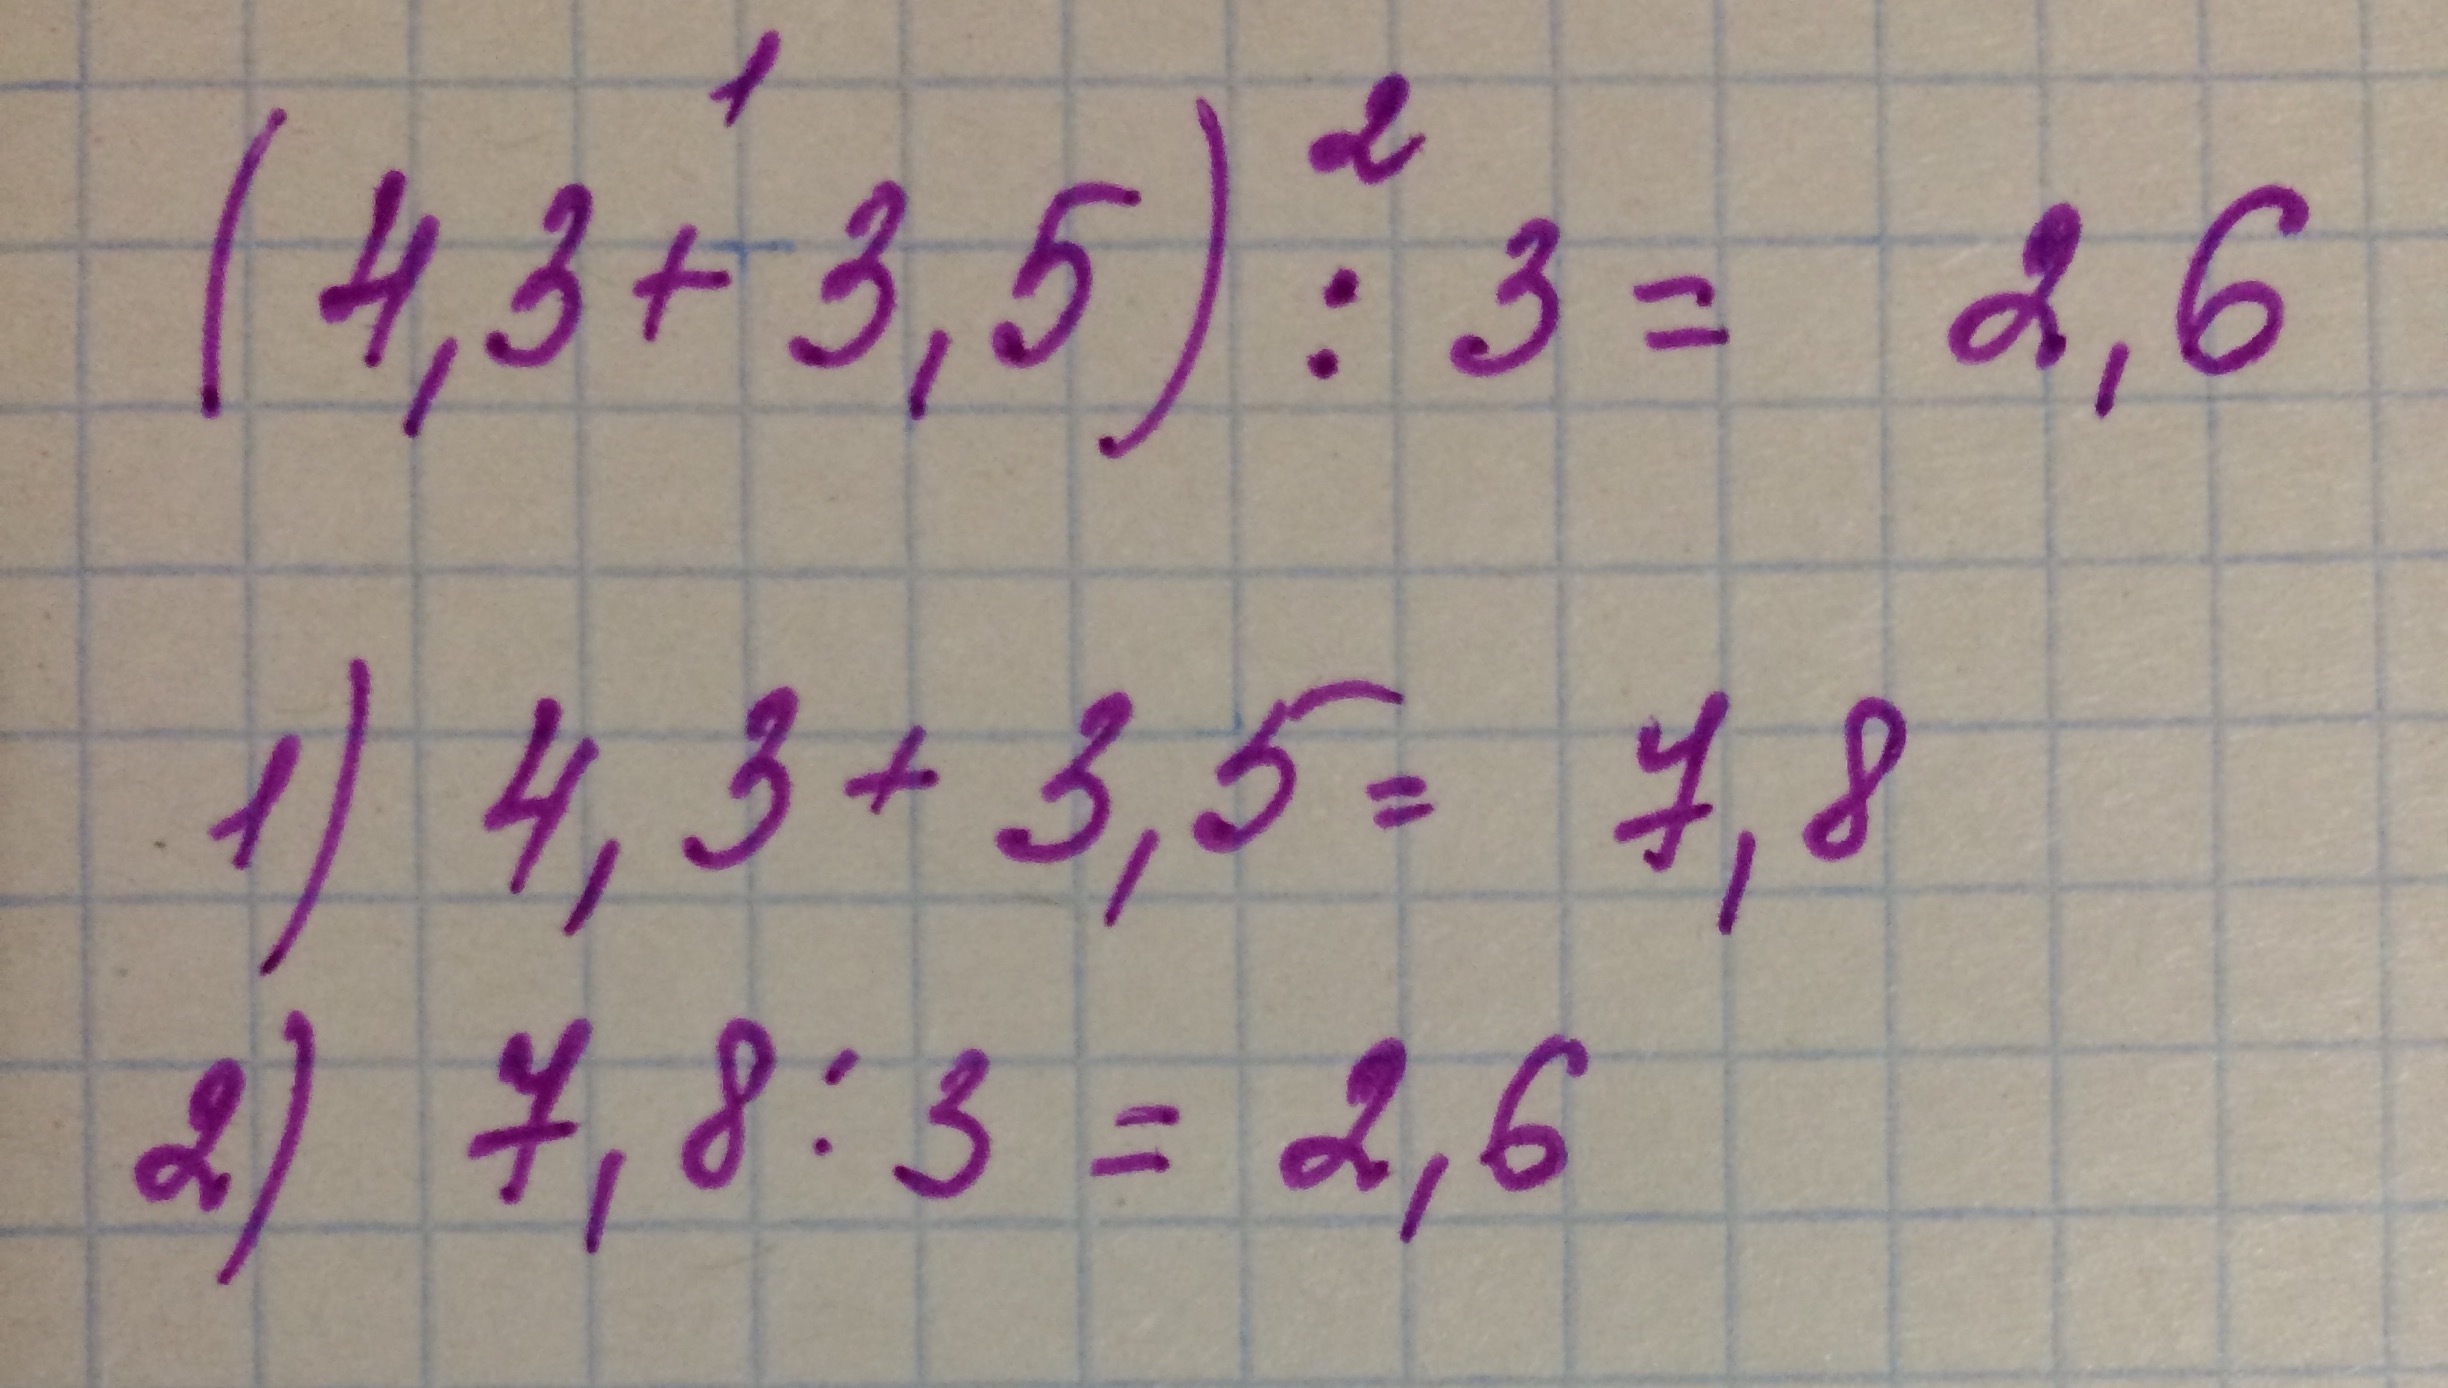 1 2
(4,3+3,5) : 3 = 2,6
1) 4,3+3,5= 7,8
2) 7,8:3 = 2,6